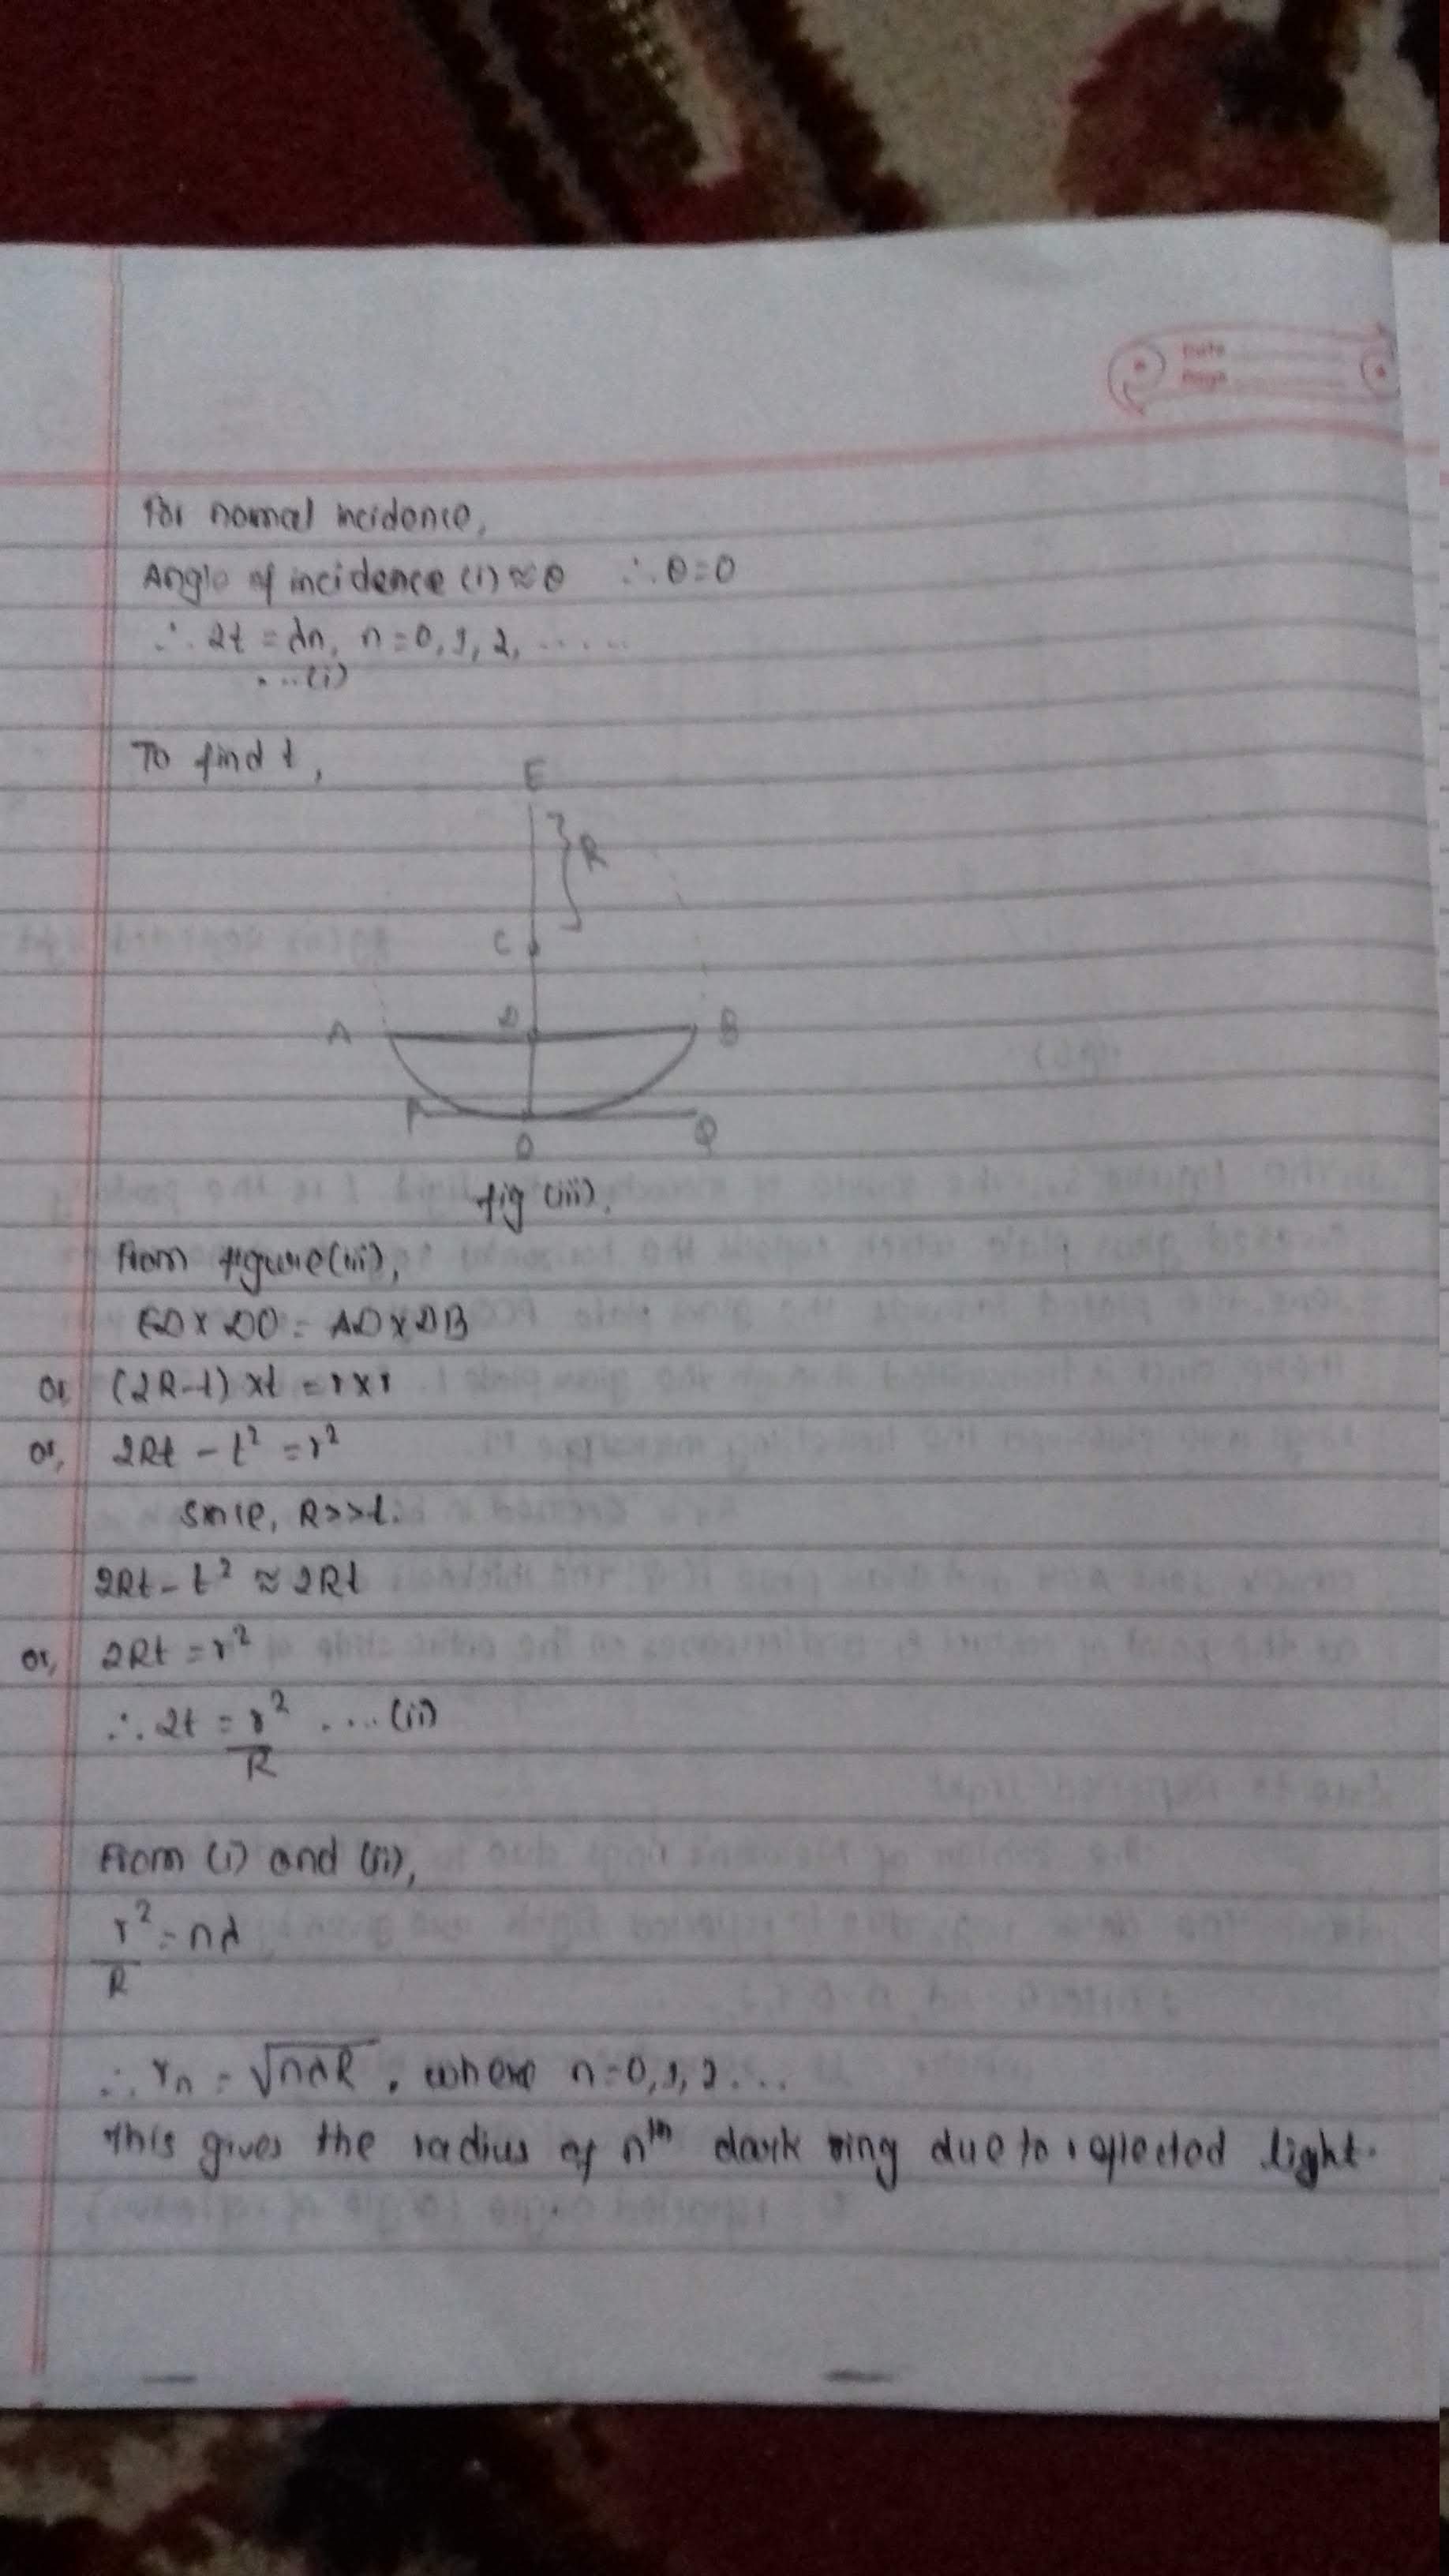 Date
Page
For normal incidence,
Angle of incidence (i) ≈ θ ∴ θ = 0
∴ 2t = λn, n = 0, 1, 2, .....
...(i)
To find t,
E
R
C
A D B
P O Q
fig (iii).
From figure (iii),
ED × DO = AD × DB
or, (2R-t) × t = r × r
or, 2Rt - t² = r²
Since, R >> t.
2Rt - t² ≈ 2Rt
or, 2Rt = r²
∴ 2t = r²/R ....(ii)
From (i) and (ii),
r²/R = nλ
∴ rn = √nλR, where n = 0, 1, 2...
This gives the radius of nth dark ring due to reflected light.